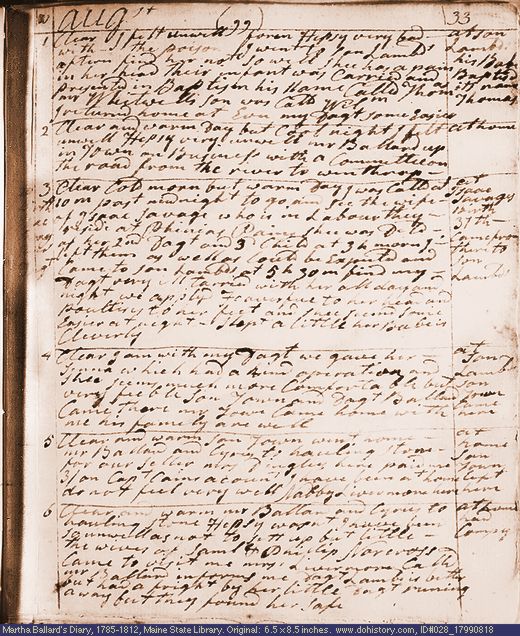 augst (99) 33
1 Clear I felt unwell. Hepsy very bad at son
with the I went to son Lambds Lambds
find her not so well she has a pain his Babe
in her head their infant was Carried and Baptisd
presented in Baptism his Name Calld Thomas its name
mr Whitwells son was Calld Wilson Thomas
returnd home at Even my Dagt some Easier
2 Clear and warm Day but Cool night I felt at home
unwell Hepsy very unwell mr Ballard up
in Town on Business with a Committee on
the road from the river to winthrop
3 Clear Cold morn but warm Day I was Calld at at
10 m past midnight to go and see the wife Isaac
of Isaac Savage who is in Labour they Savages
reside at Pain she was Deld Birth
of her 2nd Dagt and 3d Child at 3 h morn I 37th
left them as well as Could be Expected and came from
Came to son Lambds at 5 h 30 m find my there to
Dagt very ill tarried with her all day and son Lambds
night we aplied to her head and
poultis to her feet and she seems some
Easier at night I slept a little her Babe is
Cleverly
4 Clear I am with my Dagt we gave her at
Senna which had a kind operation and son
shee seems much more Comfortable but Lambds
very feeble son Town and Dagt Ballard son
Came there mr Town Came home with Town
me his famely are well here
5 Clear and warm son Town went home at
mr Ballard and Cyrus to hauling stone home
for our seller mrs here paid me son
I/ on Capt Cains account I have been at home Town
do not feel very well Sally Livermore here slept here
6 Clear and warm mr Ballard and Cyrus to at home
hauling stone Hepsy wash I have been had
so unwell as not to sit up but little Compy
the wives of Saml & Philip Norcross
Came to visit me mrs Livermore Calld
mr Ballard informs me Dagt Lambd is better
but had a fright by her little Dagt runing
away but they found her safe
Martha Ballard's Diary, 1785-1812, Maine State Library. Original: 6.5 x 8.5 inches. www.dohistory.com, ID#028_17990818